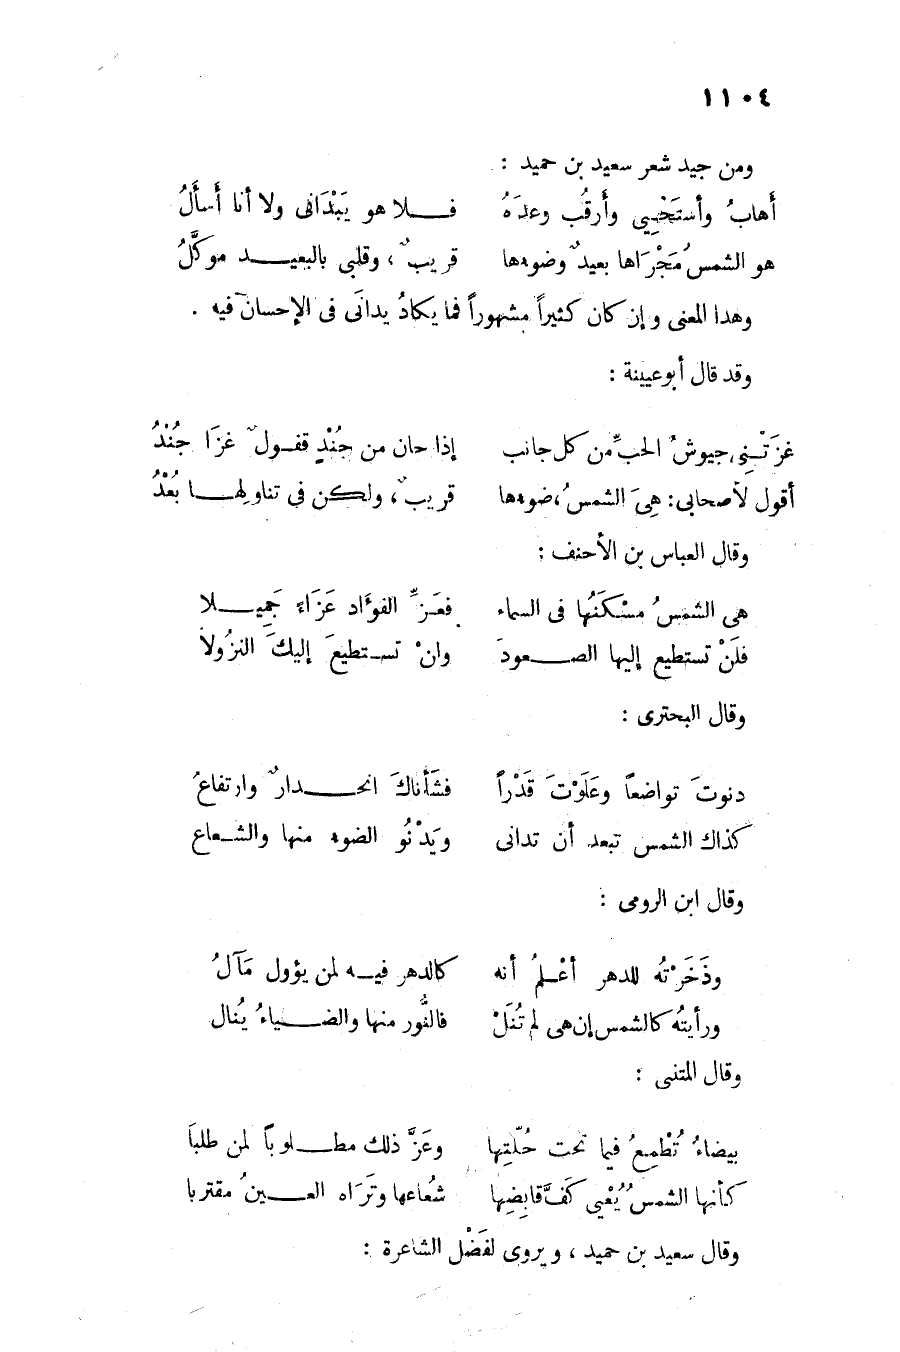 ١١٠٤
ومن جيد شعر سعيد بن حميد :
أَهابُ وأستَحْيِي وأَرقُب وعدَهُ فـــلا هو يَبْدَانى ولا أنا أَسأَلُ
هو الشمسُ مَجْرَاها بعيدٌ وضوءها قريبٌ ، وقلبى بالبعيـــد موكَّلُ
وهذا المعنى وإن كان كثيراً مشهوراً فما يكادُ يدانَى فى الإحسان فيه .
وقد قال أبو عيينة :
غزَتْنِى جيوشُ الحبِّ من كل جانب إذا حان من جُنْدٍ قفـولٌ غزَا جُنْدُ
أقول لأصحابى : هِىَ الشمسُ ، ضوءها قريبٌ ، ولكن فى تناولِهـــا بُعْدُ
وقال العباس بن الأحنف :
هى الشمسُ مسْكَنُها فى السماء فعَـزِّ الفؤَاد عَزَاءً جَمِيـــلا
فلَنْ تستطيع إليها الصـــعودَ وانْ تستطيعَ إليكَ النزُولاَ
وقال البحترى :
دنوتَ تواضعاً وعَلَوْتَ قَدْراً فشَأناكَ انحـــدارٌ وارتفاعُ
كذاك الشمس تبعد أن تدانى ويَدْنُو الضوء منها والشـعاع
وقال ابن الرومى :
وذَخَرْتُه للدهر أعْـلمُ أنه كالدهر فيـه لمن يؤول مَآلُ
ورأيتُه كالشمس إن هى لم تُنَلْ فالنُّور منها والضـــياءُ يُنال
وقال المتنبى :
بيضاءُ تُطْمِعُ فيما تحت حُلّتِها وعَزَّ ذلك مطـــلوباً لمن طلبَا
كأنها الشمسُ يُعْيِى كَفَّ قابِضِها شُعاعها وتَرَاه العـــينُ مقتربا
وقال سعيد بن حميد ، ويروى لفَضْل الشاعرة :